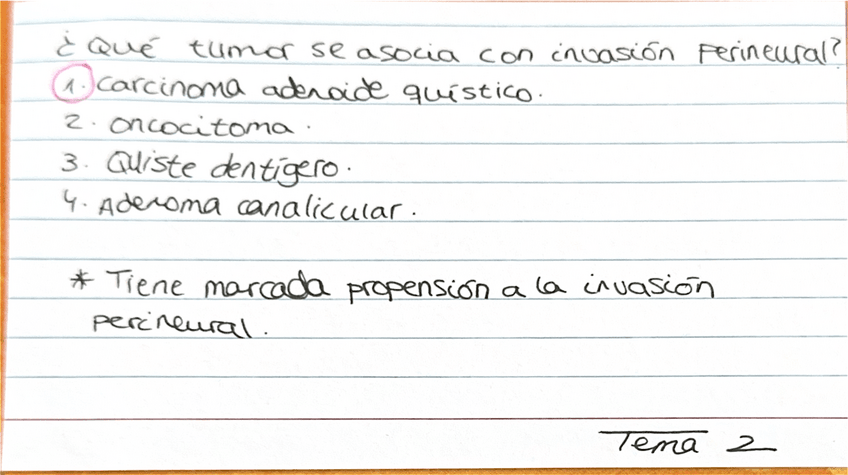 ¿Qué tumor se asocia con invasión perineural?
1. Carcinoma adenoide quístico.
2. Oncocitoma.
3. Quiste dentígero.
4. Adenoma canalicular.
* Tiene marcada propensión a la invasión
perineural.
Tema 2